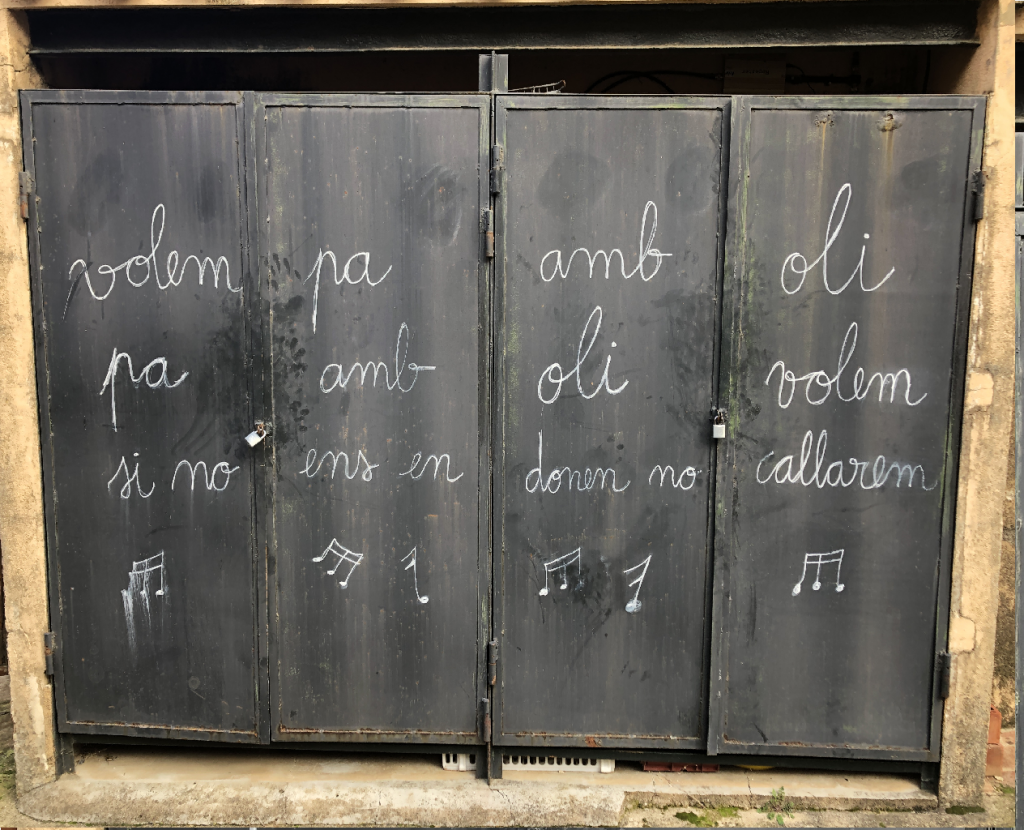 volem pa amb oli
pa amb oli volem
si no ens en donen no callarem